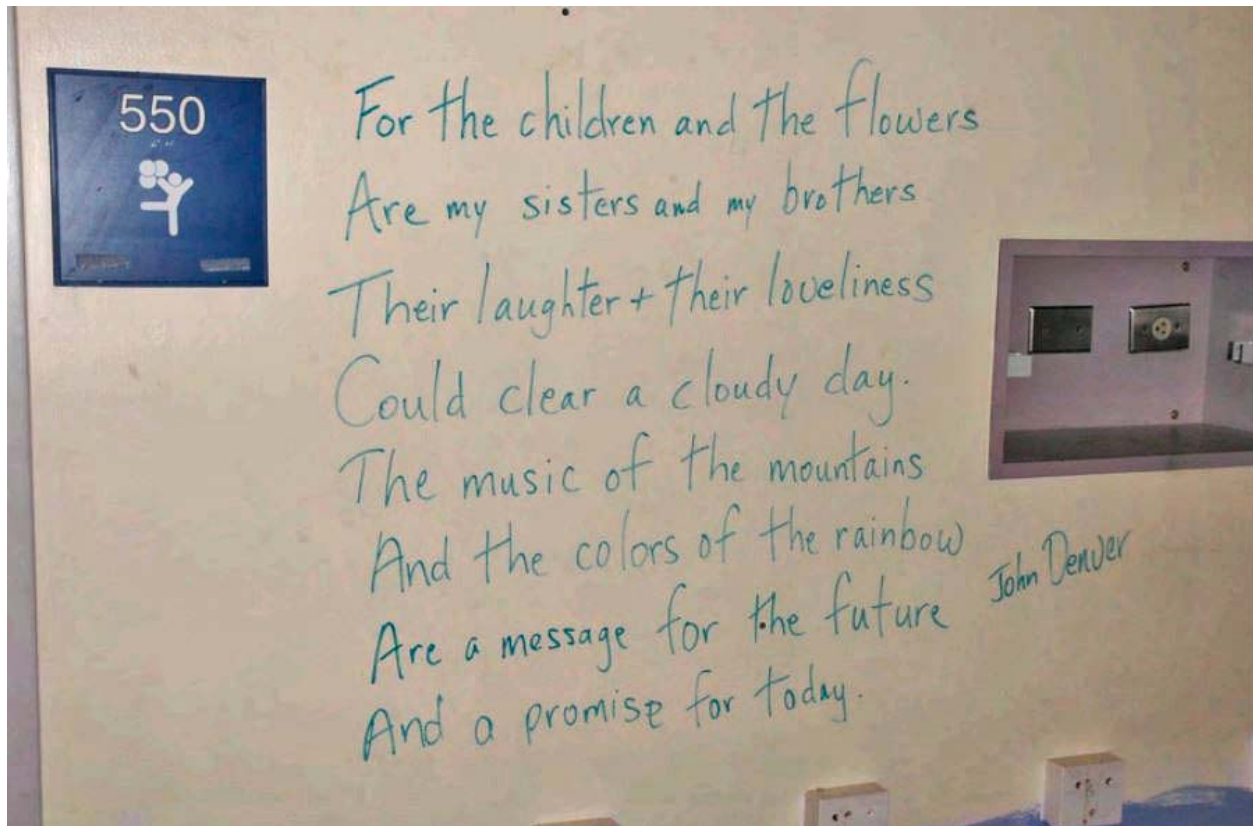 550
For the children and the flowers
Are my sisters and my brothers
Their laughter + their loveliness
Could clear a cloudy day.
The music of the mountains
And the colors of the rainbow
Are a message for the future
And a promise for today.
John Denver